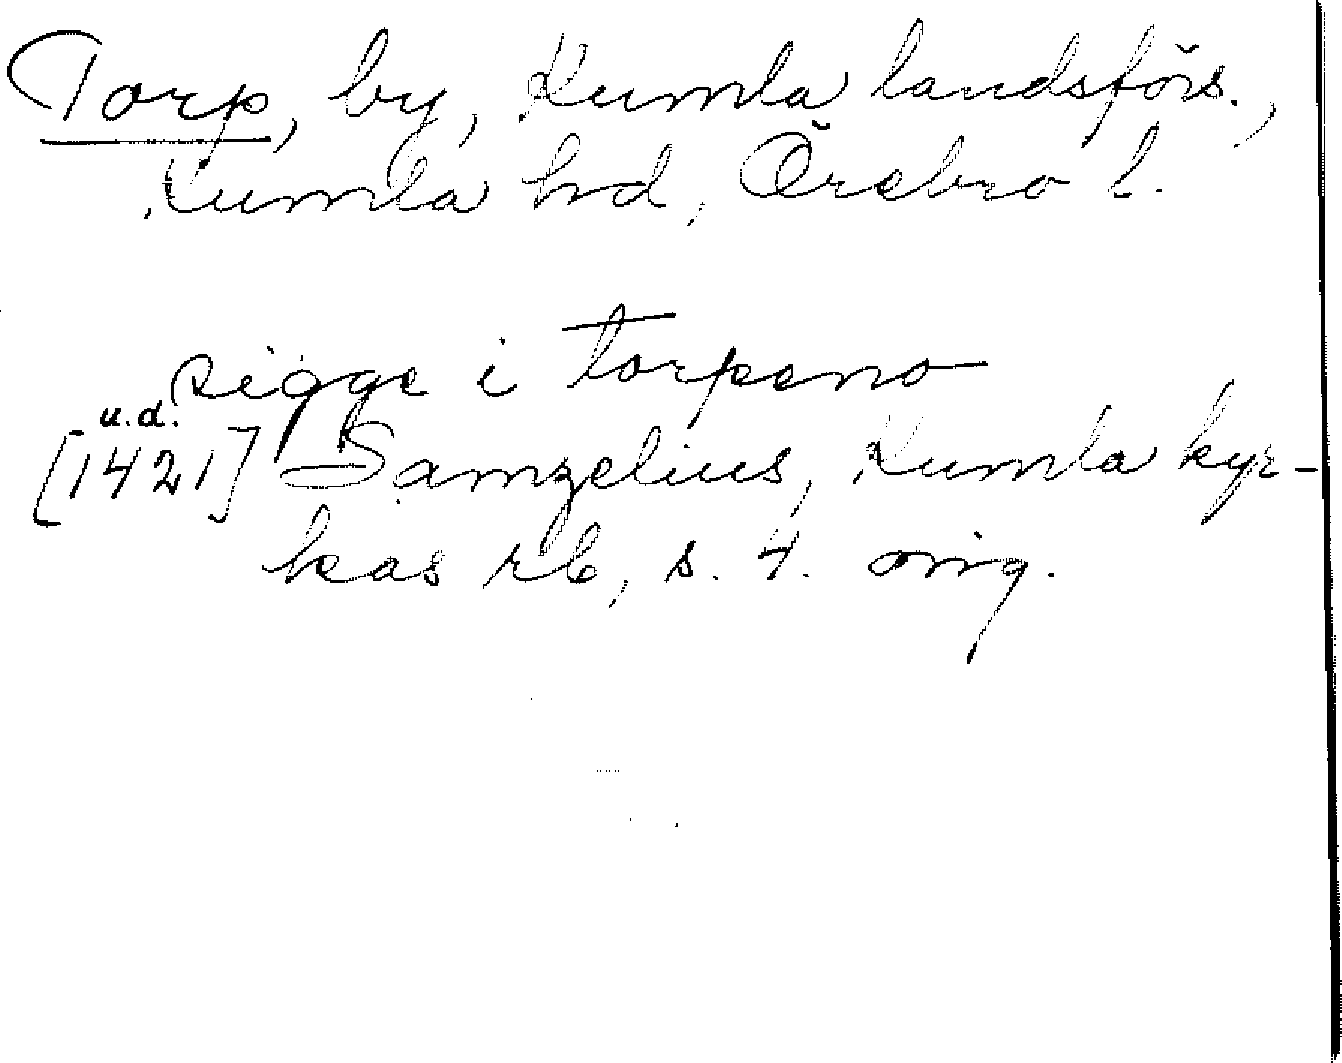 Torp, by, Kumla landsförs.,
Kumla hd, Örebro l.
sigge i torpeno
u.d.
[1421] Samzelius, Kumla kyr-
kas rb, s. 4. orig.